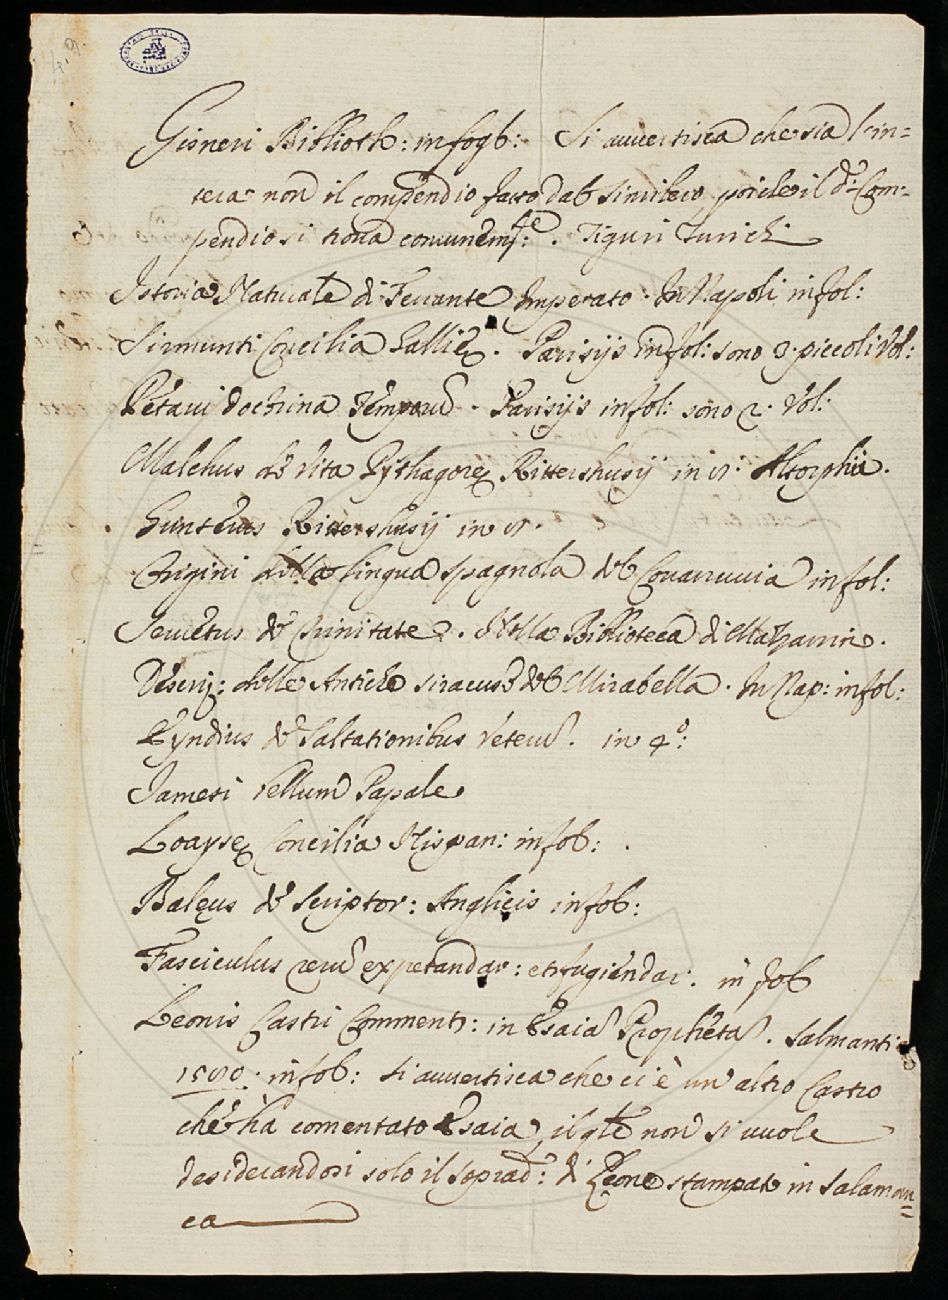 4.9.
Gisneri Biblioth: in fogl: Si avvertisca che sia l'in=
tera non il compendio facto dal Simlero poiche il d.º Com=
pendio si trova comunem.te. Tiguri Zurich
Istoria Naturale di Ferrante Imperato. In Napoli in fol:
Sirmunti Concilia Galliæ. Parisijs in fol: sono 3. piccoli Vol:
Petavi doctrina Temporũ. Parisijs in fol: sono 2. Vol:
Malchus de Vita Pythagoræ Rittershusij in 8. Altorphii.
Guntérus Rittershusij in 8.
Origini della lingua spagnola del Covarruvia in fol:
Servetus de Trinitate. Nella Biblioteca di Mazarin.
Descriz: delle Antiche Siracuse del Mirabella. In Nap: in fol:
de Saltationibus Veterũ. in 4º:
Jamesi Bellum Papale
Loaysæ Concilia Hispan: in fol:.
Balęus de Scriptor: Anglicis in fol:
Fasciculus rerũ expetandar: et fugiendar: in fol
Leonis Castri Comment: in Esaiã Prophetã. Salmanti
in fol: si avvertisca che ci è un'altro Castro
che hà comentato Esaia, il qle non si vuole
desiderandosi solo il soprad: di Leone stampato in Salaman
ca